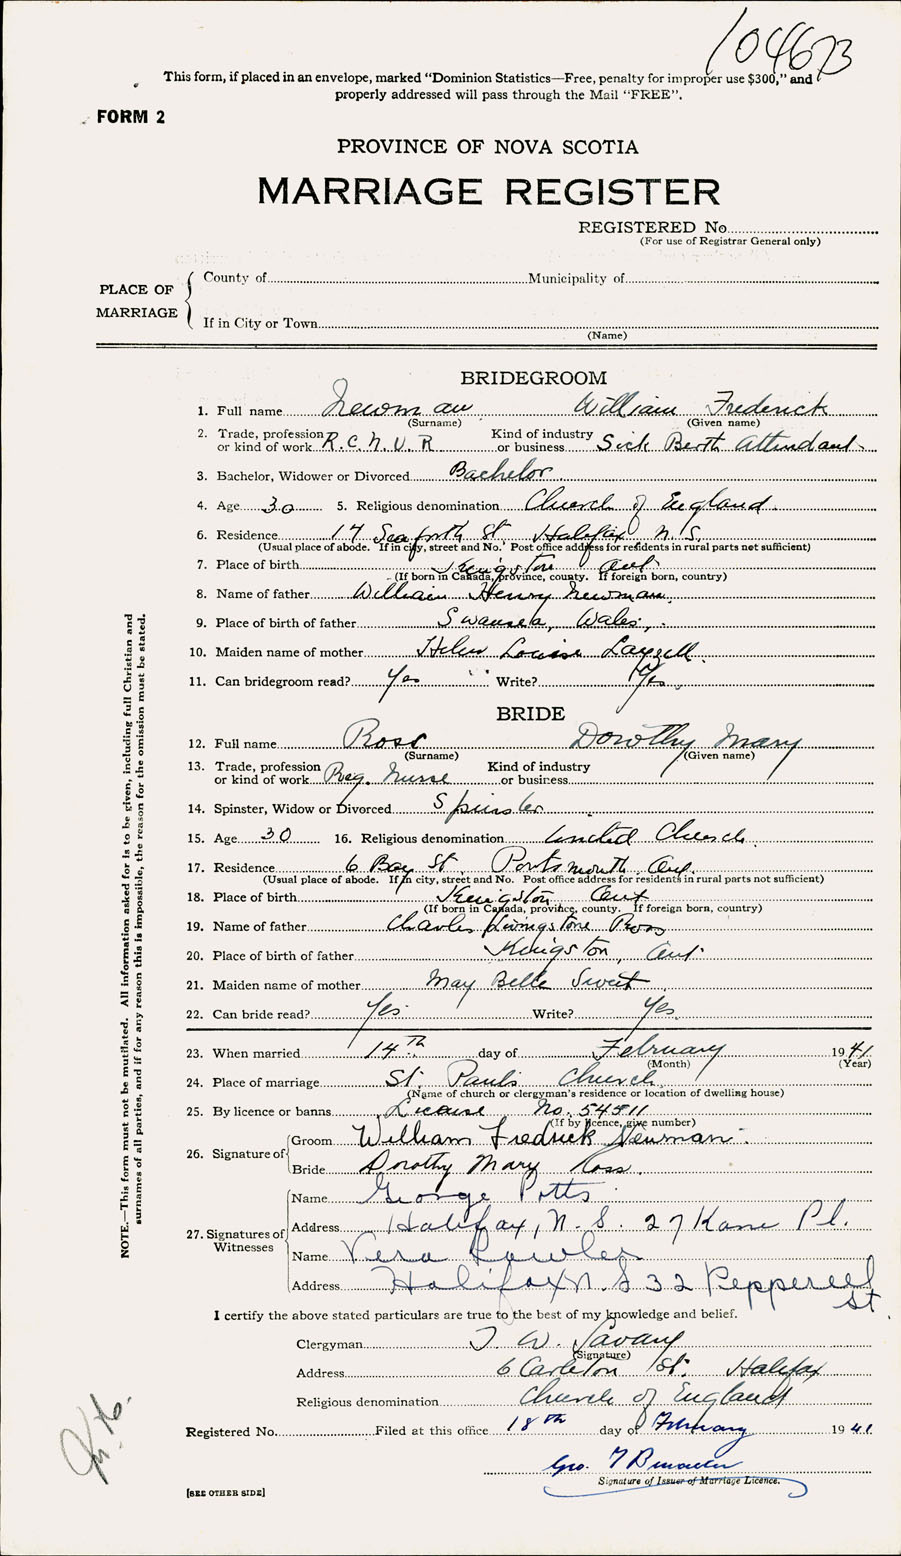 104673
This form, if placed in an envelope, marked “Dominion Statistics—Free, penalty for improper use $300,” and
properly addressed will pass through the Mail “FREE”.
FORM 2
PROVINCE OF NOVA SCOTIA
MARRIAGE REGISTER
REGISTERED No.
(For use of Registrar General only)
PLACE OF MARRIAGE
County of Municipality of
If in City or Town
(Name)
BRIDEGROOM
1. Full name Newman William Frederick
(Surname) (Given name)
2. Trade, profession or kind of work R.C.N.V.R Kind of industry or business Sick Berth Attendant
3. Bachelor, Widower or Divorced Bachelor
4. Age 30 5. Religious denomination Church of England
6. Residence 17 Seaforth St Halifax N.S.
(Usual place of abode. If in city, street and No. Post office address for residents in rural parts not sufficient)
7. Place of birth Kingston Ont.
(If born in Canada, province, county. If foreign born, country)
8. Name of father William Henry Newman.
9. Place of birth of father Swansea, Wales,
10. Maiden name of mother Helen Louise Layzell.
11. Can bridegroom read? Yes Write? Yes.
BRIDE
12. Full name Ross Dorothy Mary
(Surname) (Given name)
13. Trade, profession or kind of work Reg. Nurse Kind of industry or business
14. Spinster, Widow or Divorced Spinster
15. Age 30 16. Religious denomination United Church
17. Residence 6 Bay St. Portsmouth Ont.
(Usual place of abode. If in city, street and No. Post office address for residents in rural parts not sufficient)
18. Place of birth Kingston Ont
(If born in Canada, province, county. If foreign born, country)
19. Name of father Charles Livingstone Ross
20. Place of birth of father Kingston, Ont.
21. Maiden name of mother May Belle Sweet
22. Can bride read? Yes. Write? Yes.
23. When married 14th day of February 1941
(Month) (Year)
24. Place of marriage St. Paul's Church
(Name of church or clergyman's residence or location of dwelling house)
25. By licence or banns License No. 54511
(If by licence, give number)
26. Signature of
Groom William Fredrick Newman.
Bride Dorothy Mary Ross.
27. Signatures of Witnesses
Name George Potts
Address Halifax, N.S. 27 Kane Pl.
Name Vera Rawles
Address Halifax N.S 32 Pepperell
St
I certify the above stated particulars are true to the best of my knowledge and belief.
Clergyman T. W. Savary
(Signature)
Address 6 Carleton St. Halifax
Religious denomination Church of England
Registered No. Filed at this office 18th day of February 1941
Geo.
Signature of Issuer of Marriage Licence.
[SEE OTHER SIDE]
NOTE.—This form must not be mutilated. All information asked for is to be given, including full Christian and
surnames of all parties, and if for any reason this is impossible, the reason for the omission must be stated.